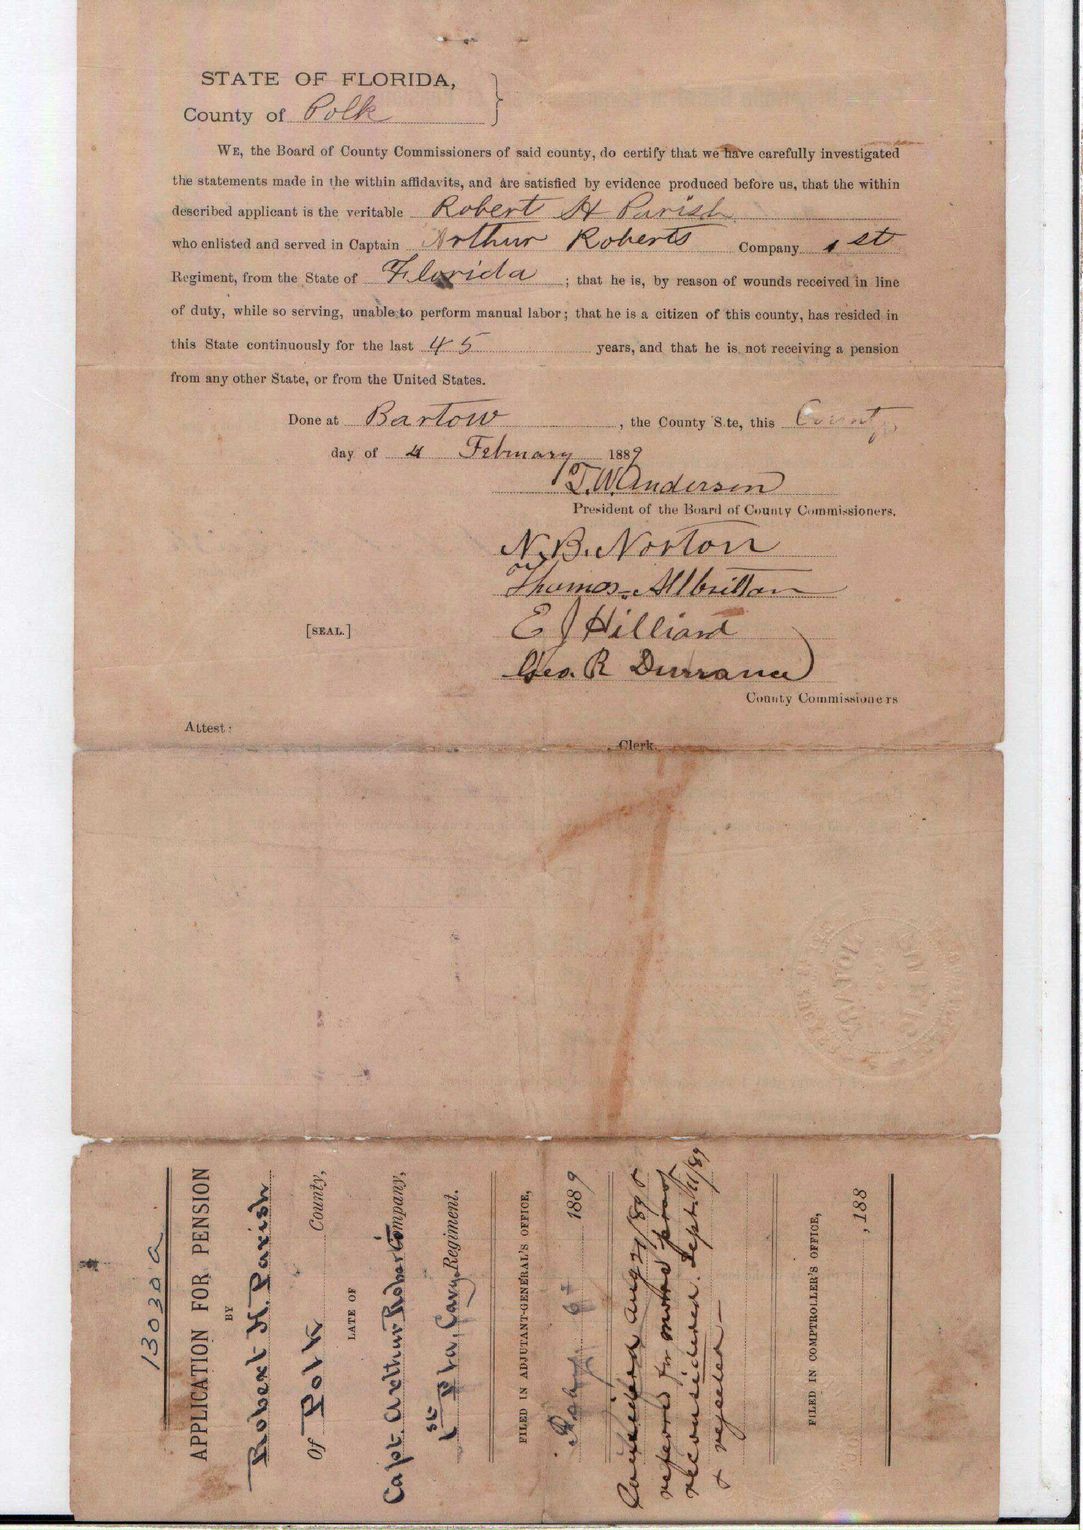 STATE OF FLORIDA,
County of Polk
WE, the Board of County Commissioners of said county, do certify that we have carefully investigated
the statements made in the within affidavits, and are satisfied by evidence produced before us, that the within
described applicant is the veritable Robert H Parish
who enlisted and served in Captain Arthur Roberts Company 1st
Regiment, from the State of Florida ; that he is, by reason of wounds received in line
of duty, while so serving, unable to perform manual labor; that he is a citizen of this county, has resided in
this State continuously for the last 45 years, and that he is not receiving a pension
from any other State, or from the United States.
Done at Bartow , the County S te, this County
day of 4 February 1889
T. W. Anderson
President of the Board of County Commissioners.
N. B. Norton
Thomas Albritton
E J Hilliard
[SEAL.]
Geo. R Durrance
County Commissioners
Attest:
Clerk.
13030a
APPLICATION FOR PENSION
BY
Robert H. Parish
Of Polk County,
LATE OF
Capt. Arthur Roberts Company,
1st Fla, Cavy Regiment.
FILED IN ADJUTANT-GENERAL'S OFFICE,
Feby 6th 1889
Considered Aug 29/89
referred for more proof
reconsidered Sept. 11/89
& rejected
FILED IN COMPTROLLER'S OFFICE,
, 188